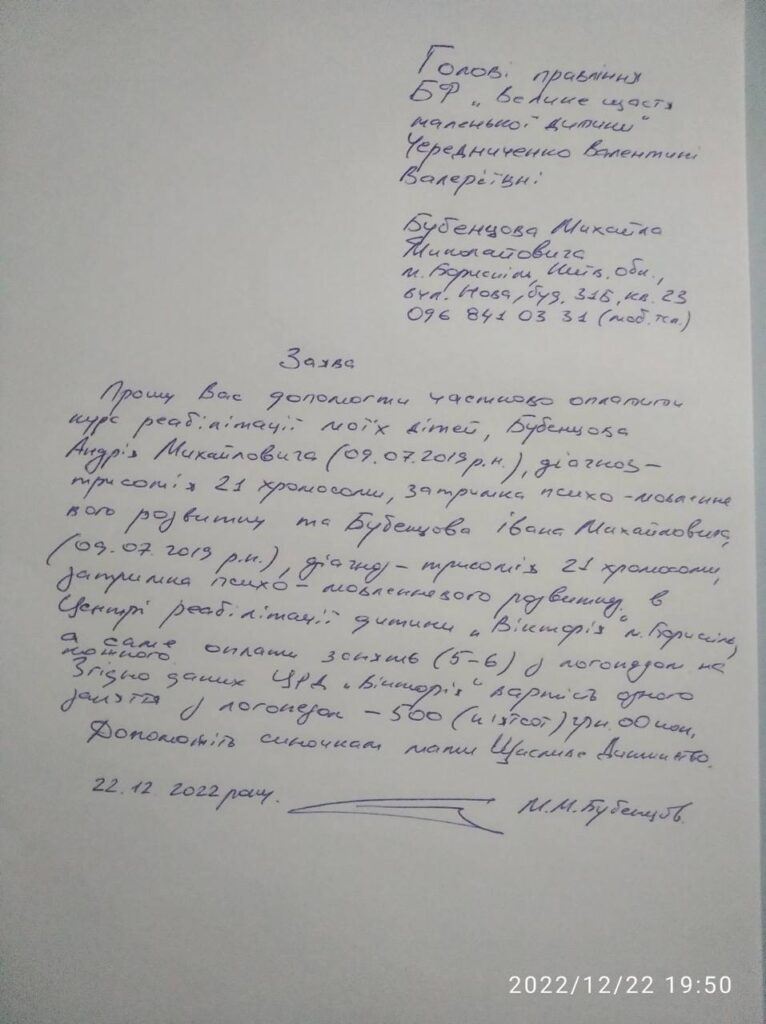 Голові правління
БФ „Велике щастя
маленької дитини"
Чередниченко Валентині
Валеріївні
Бубенцова Михайла
Миколайовича
м. Бориспіль, Київ. обл.,
вул. Нова, буд. 31Б, кв. 23
096 841 03 31 (моб. тел.)
Заява
Прошу Вас допомогти частково оплатити
курс реабілітації моїх дітей, Бубенцова
Андрія Михайловича (09.07.2019 р.н.), діагноз –
трисомія 21 хромосоми, затримка психо-мовленнє
вого розвитку та Бубенцова Івана Михайловича,
(09.07.2019 р.н.), діагноз – трисомія 21 хромосоми,
затримка психо-мовленнєвого розвитку в
Центрі реабілітації дитини „Вікторія" м. Бориспіль,
а саме оплати занять (5-6) з логопедом на
кожного
Згідно даних ЦРД „Вікторія" вартість одного
заняття з логопедом – 500 (п'ятсот) грн. 00 коп.
Допоможіть синочкам мати Щасливе Дитинство.
22.12.2022 року.
М.М. Бубенцов.
2022/12/22 19:50